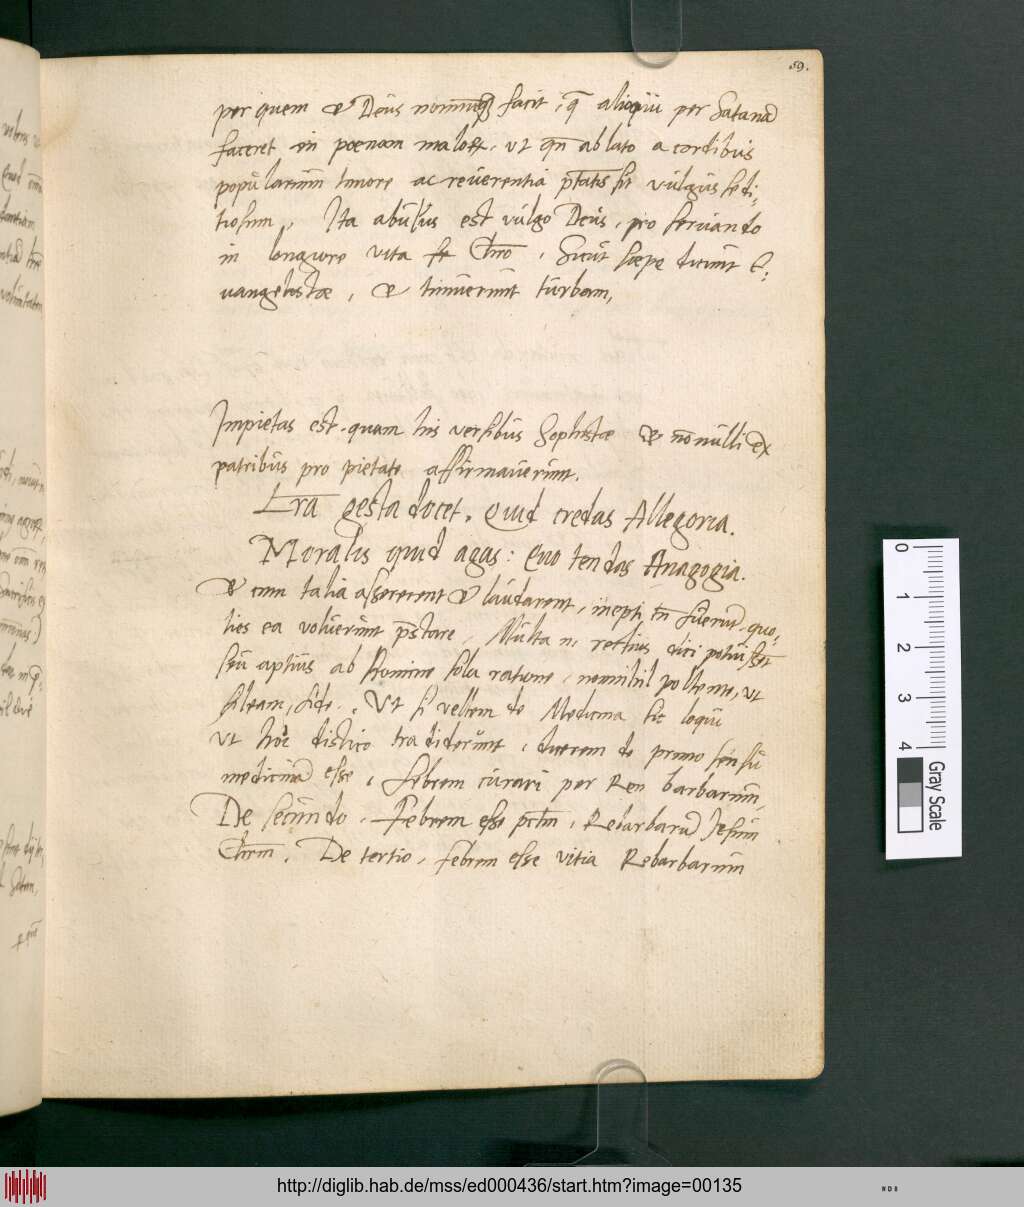 59.
per quem & Deus nonnunq̃ facit, q̃ alioqui per Satanã
faceret in poenam malorꝝ. ut qñ ablato a cordibus
popularium timore ac reverentia ptatis sit vulgus sedi-
tiosum. Ita abusus est vulgo Deus, pro servando
in longiore vita Chro. Sicut saepe dicunt E-
vangelistae, & timuerunt turbam,
Impietas est. quam his versibus Sophistae & nõnulli ex
patribus pro pietate affirmaverunt.
Lra gesta docet. Quid credas Allegoria.
Moralis quid agas: Quo tendas Anagogia.
& cum talia assererent & laudarent, inepti tñ fuerũt, quo-
ties ea voluerunt pstare. Multa n. rectius dici potuissẽt
seu aptius ab homine sola ratione, nonnihil pollente, ut
sileam, fide. Ut si vellem de Medicina sic loqui
ut hoc disticõ tradiderunt, dicerem de primo sensu
medicinã esse, Febrem curari per Reu barbarum,
De secundo. Febrem esse pctm, Rebarbarũ Jesum
Chrm. De tertio, febrem esse vitia Rebarbarum
0 1 2 3 4
Gray Scale
http://diglib.hab.de/mss/ed000436/start.htm?image=00135